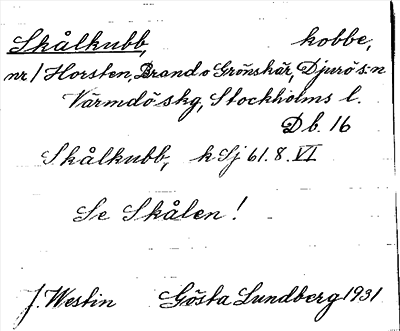 Skålkubb, kobbe,
nr / Horsten, Brand o Grönskär, Djurö s:n
Värmdö skg, Stockholms l.
Db. 16
Skålkubb, k Sj 61. 8. VI
Se Skålen!
J. Westin Gösta Lundberg 1931